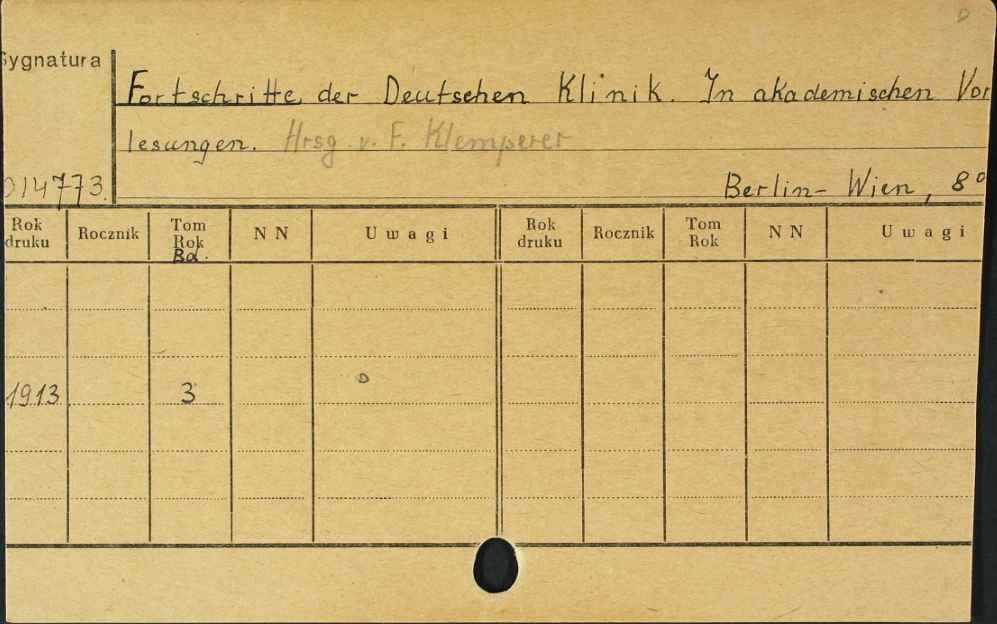 Sygnatura
Fortschritte der Deutschen Klinik. In akademischen Vor
lesungen. Hrsg. v. F. Klemperer
014773.
Berlin - Wien, 8°
Rok druku Rocznik Tom Rok Bd. N N Uwagi Rok druku Rocznik Tom Rok N N Uwagi
1913 3